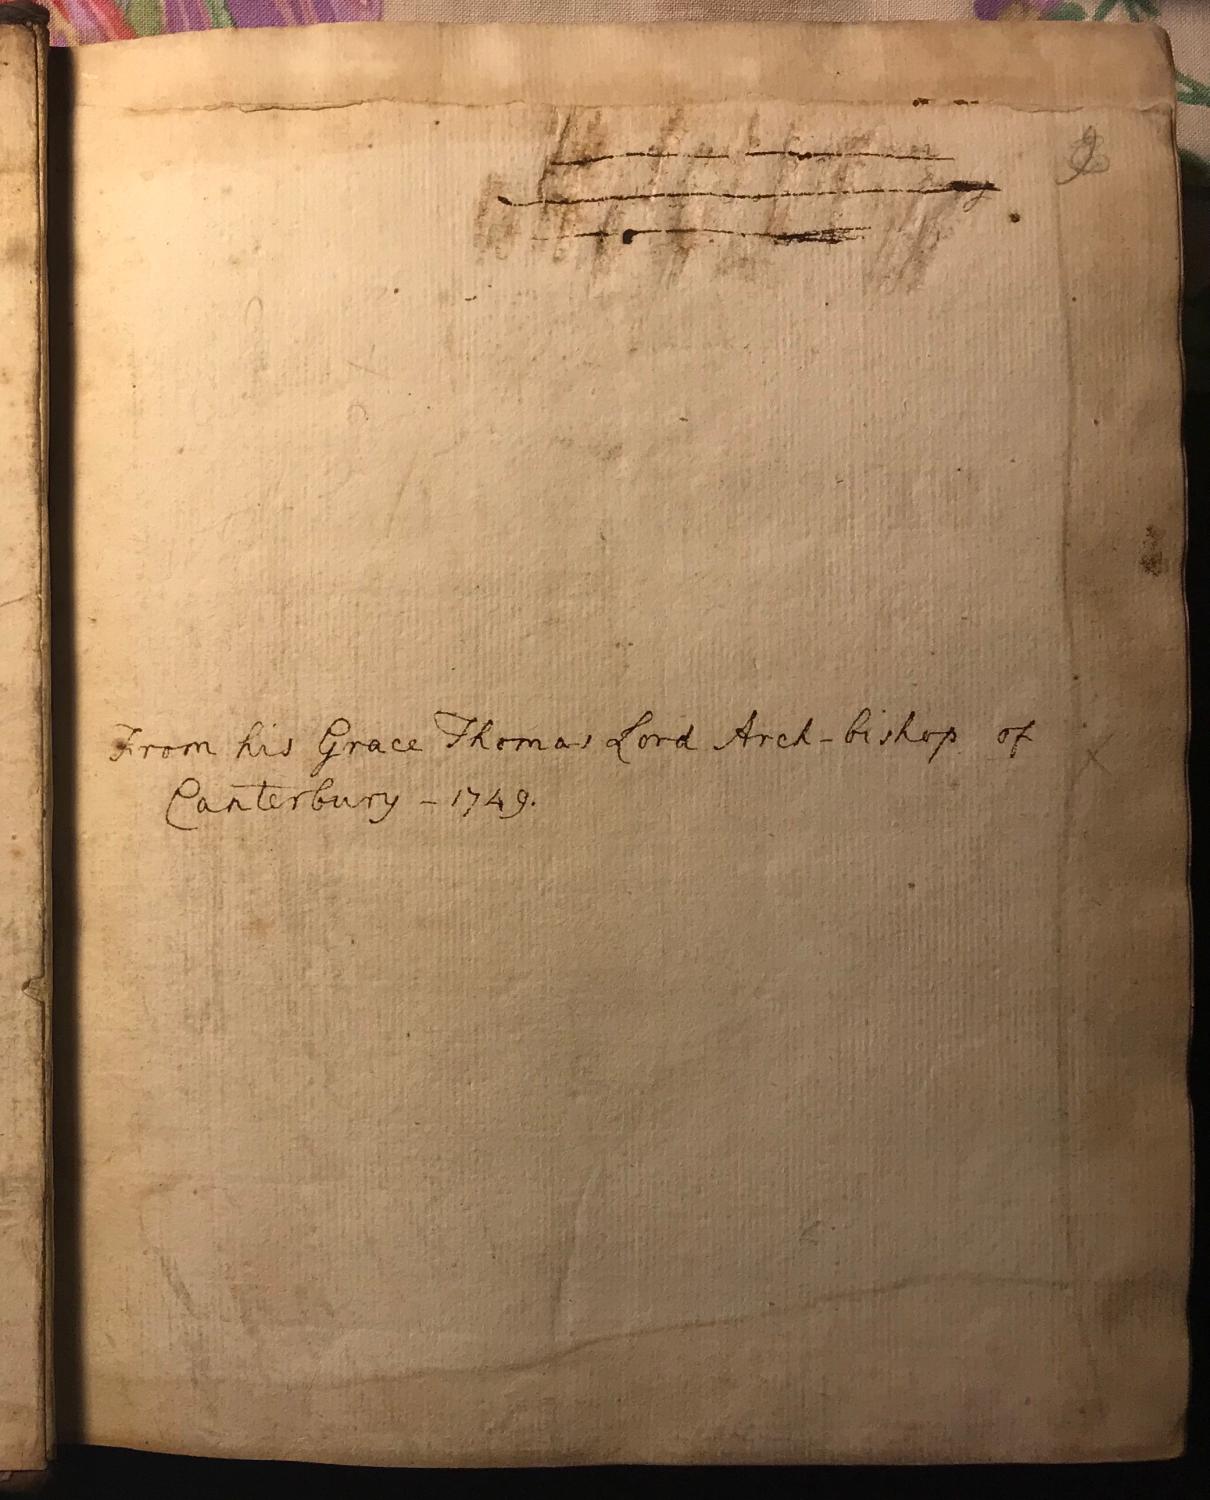 From his Grace Thomas Lord Arch-bishop of
Canterbury - 1749.